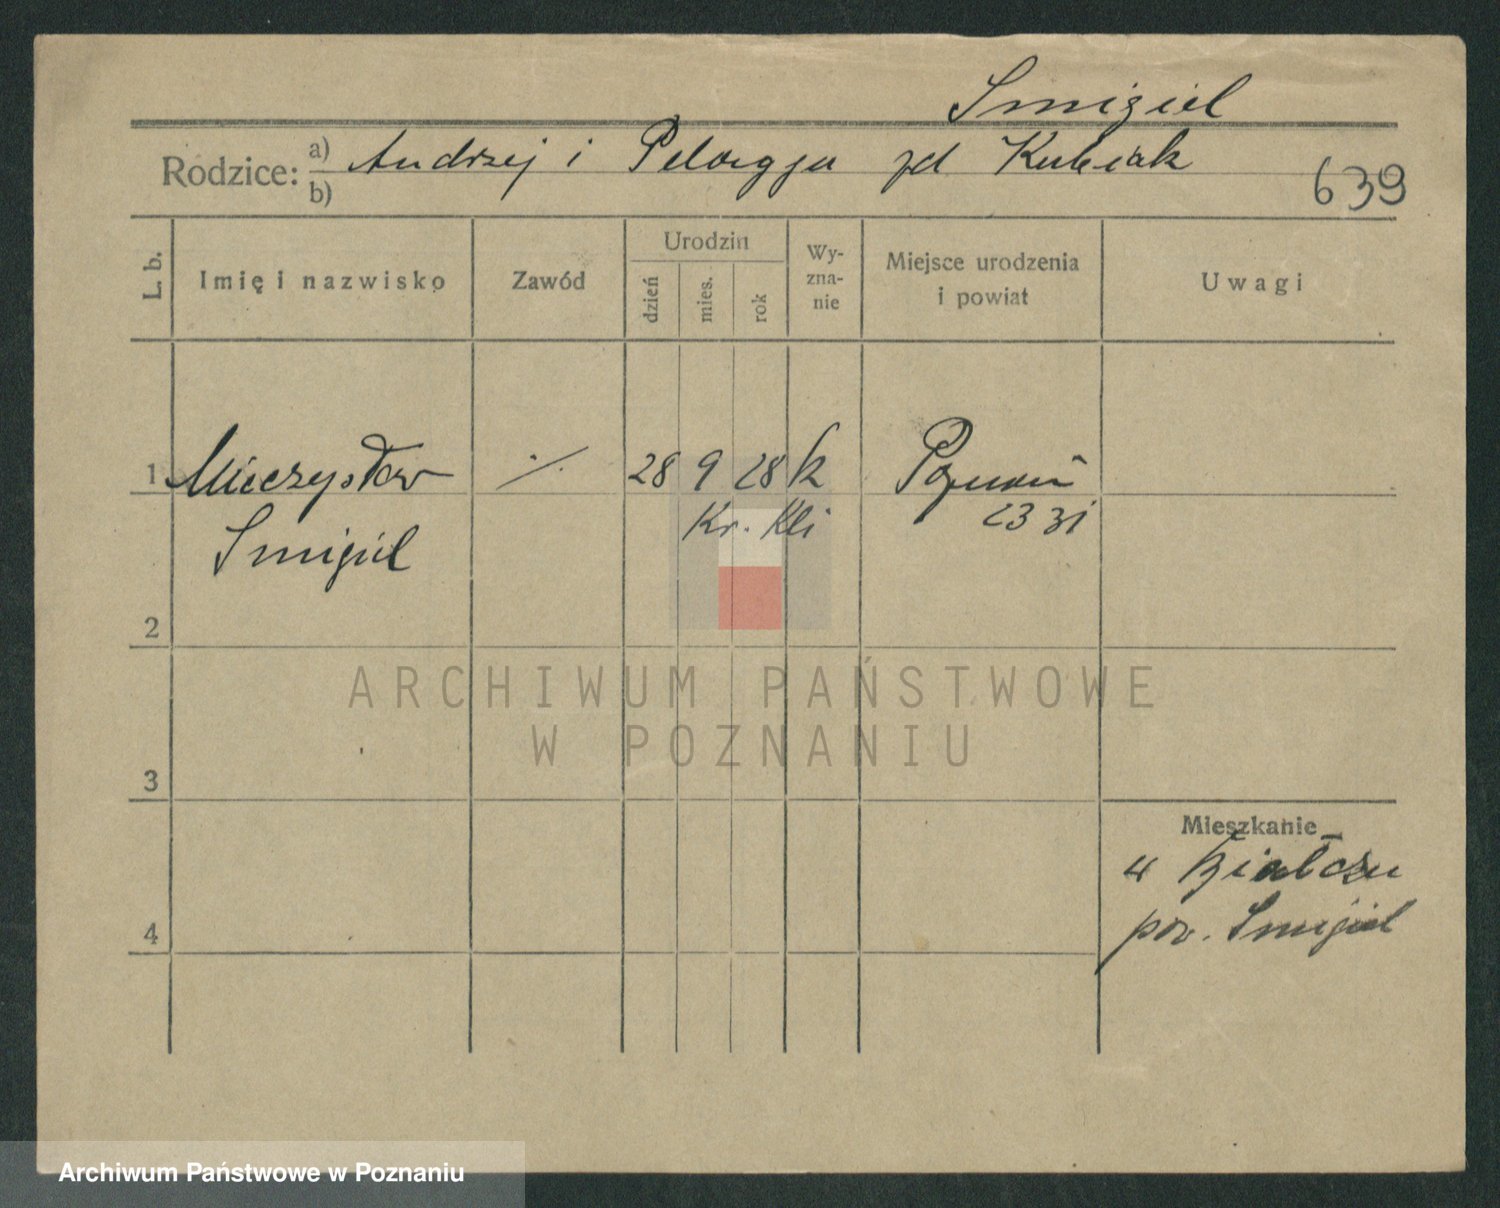 Smigiel
Rodzice: a) Andrzej i Pelagja zd Kubiak
b)
639
L. b.
Imię i nazwisko
Zawód
Urodzin
dzień
mies.
rok
Wy-
zna-
nie
Miejsce urodzenia
i powiat
Uwagi
1 Mieczysław ./. 28 9 28 k Poznań
Smigiel Kr. Kli 23 31
2
3
4
Mieszkanie
w Białczu
pow. Smigiel
ARCHIWUM PAŃSTWOWE
W POZNANIU
Archiwum Państwowe w Poznaniu